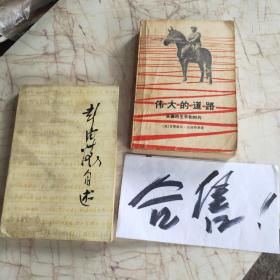 彭德怀自述
伟大的道路
朱德的生平和时代
合售！